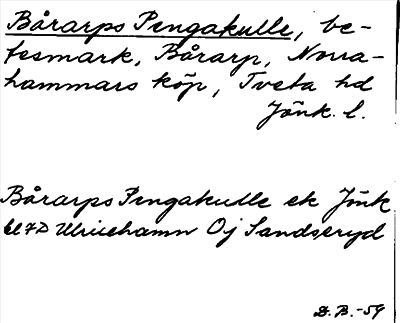 Bårarps Pengakulle, be-
tesmark, Bårarp, Norra-
hammars köp, Tveta hd
Jönk. l.
Bårarps Pengakulle ek Jönk
bl 7D Ulricehamn Oj Sandseryd
D. B. -59